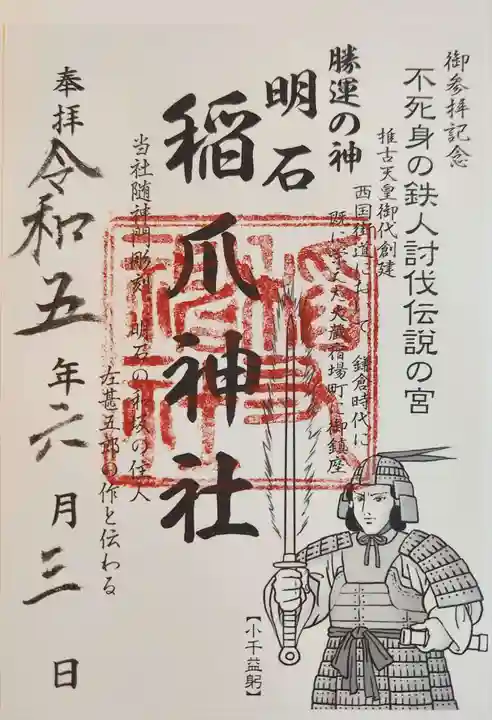 御参拝記念
不死身の鉄人討伐伝説の宮
推古天皇御代創建
西国街道において 鎌倉時代に
既に栄えた大蔵宿場町に御鎮座
勝運の神
明石
稲爪神社
当社随神門彫刻 明石の
の住人
左甚五郎の作と伝わる
奉拝
令和五年六月三日
【小千益躬】